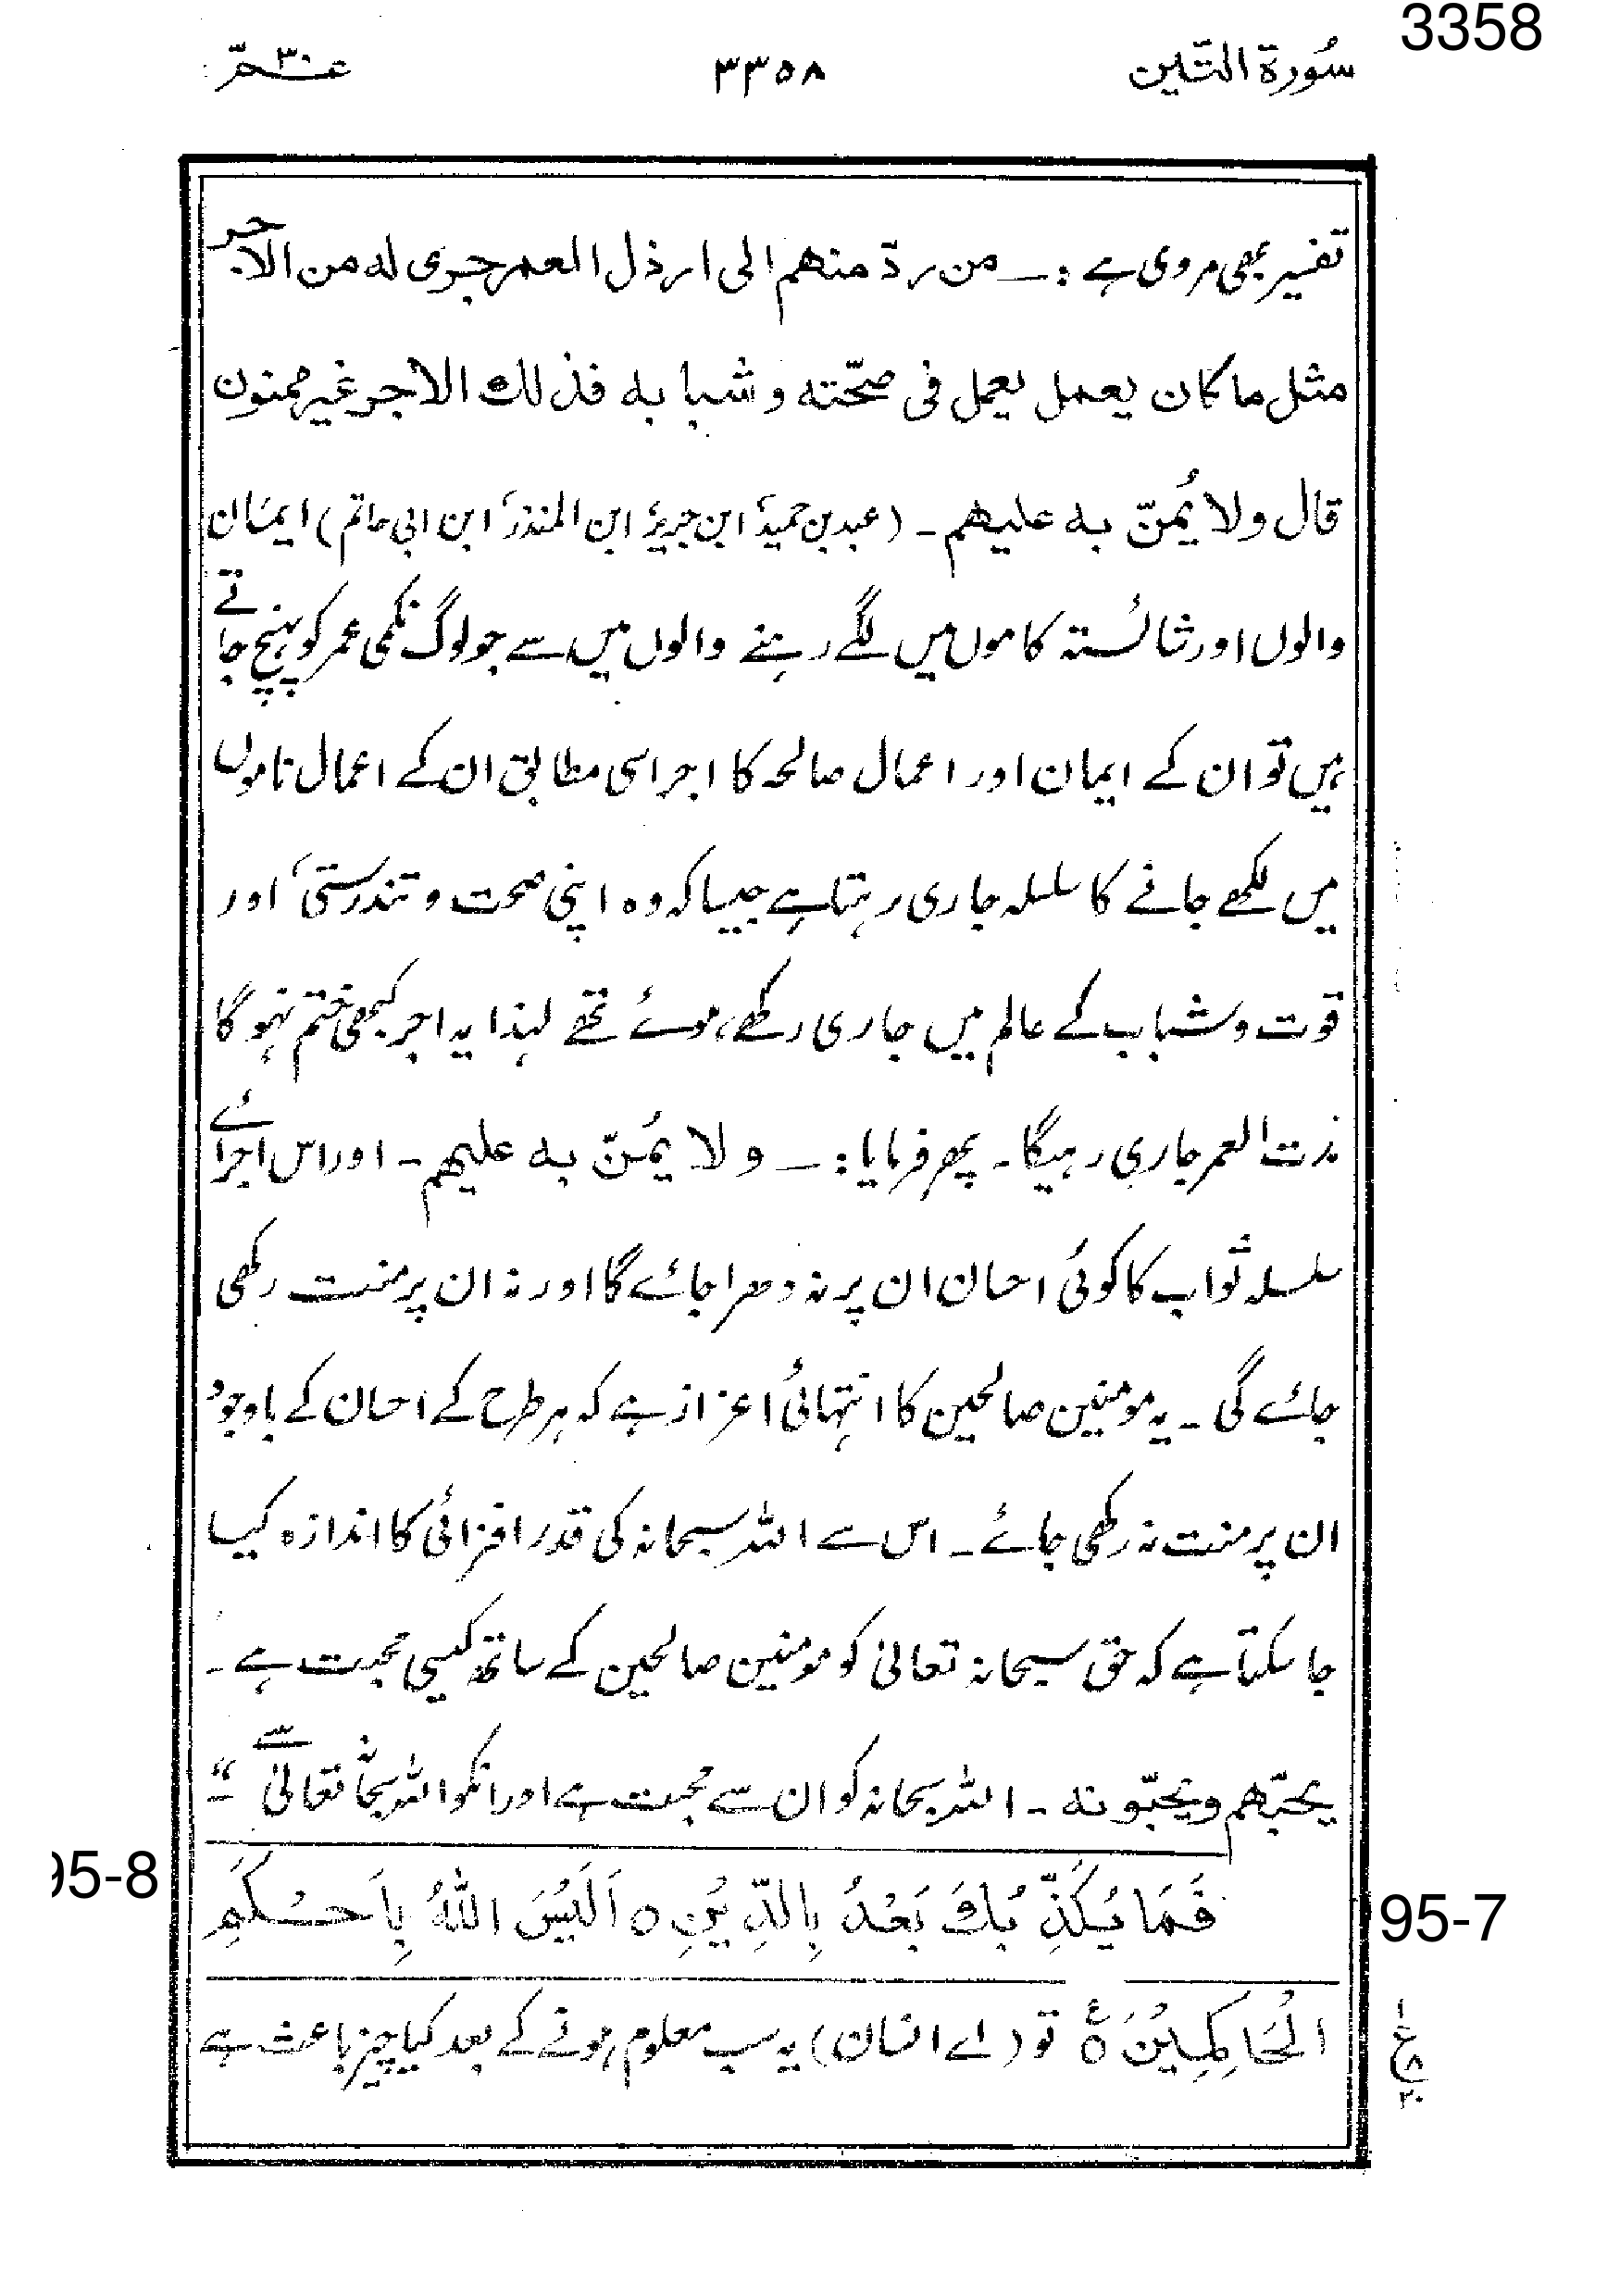 3358
سُورة التّين ۳۳۵۸ عـمّ ۳۰
تفسیر بھی مروی ہے :ـــ من ردّ منهم الی ارذل العمر جری له من الاجر
مثل ما کان یعمل یعمل فی صحّته و شبابه فذلك الاجر غیر ممنون
قال ولا یُمنّ به علیهم ۔ (عبد بن حمیدؒ، ابن جریرؒ، ابن المنذرؒ، ابن ابی حاتم) ایمان
والوں اور شائستہ کاموں میں لگے رہنے والوں میں سے جو لوگ نکمی عمر کو پہنچ جاتے
ہیں تو ان کے ایمان اور اعمال صالحہ کا اجر اسی مطابق ان کے اعمال ناموں
میں لکھے جانے کا سلسلہ جاری رہتا ہے جیسا کہ وہ اپنی صحت و تندرستی، اور
قوت و شباب کے عالم میں جاری رکھے ہوئے تھے لہذا یہ اجر کبھی ختم نہو گا
مدت العمر جاری رہیگا ۔ پھر فرمایا :ـــ ولا یمُنّ به علیهم ۔ اور اس اجرائے
سلسلہ ثواب کا کوئی احسان ان پر نہ دھرا جائے گا اور نہ ان پر منت رکھی
جائے گی ۔ یہ مومنین صالحین کا انتہائی اعزاز ہے کہ ہر طرح کے احسان کے باوجود
ان پر منت نہ رکھی جائے ۔ اس سے اللہ سبحانہ کی قدر افزائی کا اندازہ کیا
جا سکتا ہے کہ حق سبحانہ تعالیٰ کو مومنین صالحین کے ساتھ کیسی محبت ہے ۔
یحبّهم ویحبّونه ۔ اللہ سبحانہ کو ان سے محبت ہے اور انکو اللہ سبحانہ تعالیٰ سے ۔"
95-8 فَمَا يُكَذِّبُكَ بَعْدُ بِالدِّيْنِ ○ اَلَيْسَ اللّٰهُ بِاَحْكَمِ 95-7
الْحَاكِمِيْنَ ○ع تو (اے انسان) یہ سب معلوم ہونے کے بعد کیا چیز باعث ہے
۱ ع ۸ ۲۰